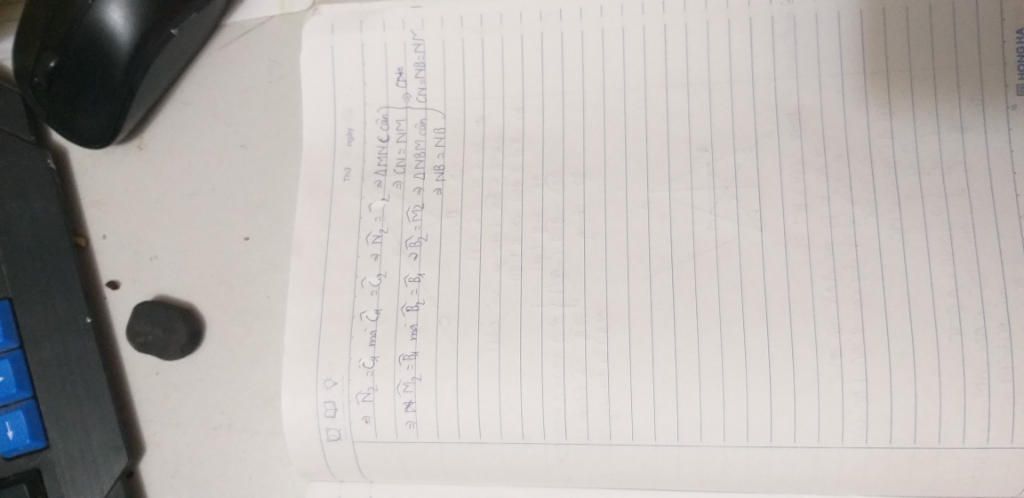 Thứ ngày
⇒ N̂₂ = Ĉ₁ mà Ĉ₁ = Ĉ₂ ⇒ N̂₂ = Ĉ₂ ⇒ ΔMNC cân
⇒ CN = NM
⇒ M̂₂ = B̂₁ mà B̂₂ = B̂₁ ⇒ B̂₂ = M̂₂ ⇒ ΔNBM cân
⇒ NB = NB
⇒
CN = NB = NM
HONG HA